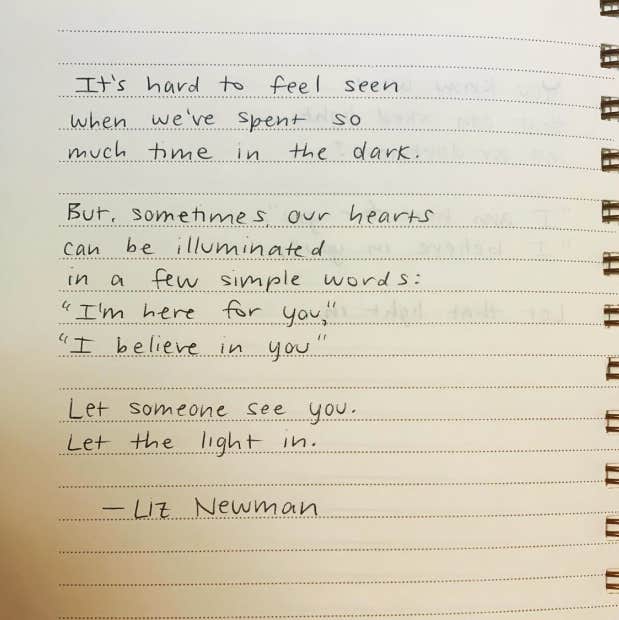 It's hard to feel seen
when we've spent so
much time in the dark.
But, sometimes, our hearts
can be illuminated
in a few simple words:
"I'm here for you,"
"I believe in you"
Let someone see you.
Let the light in.
— Liz Newman